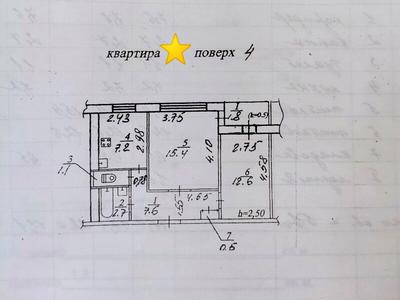 квартира поверх 4
2.43 3.75 I 1.8 (к=0.5)
4 7.2 2.98 5 15.4 4.10 2.75
3 1.1 0.78 6 12.6 4.58
2 2.7 1 7.6 1.55 4.65 h=2,50
7 0.6